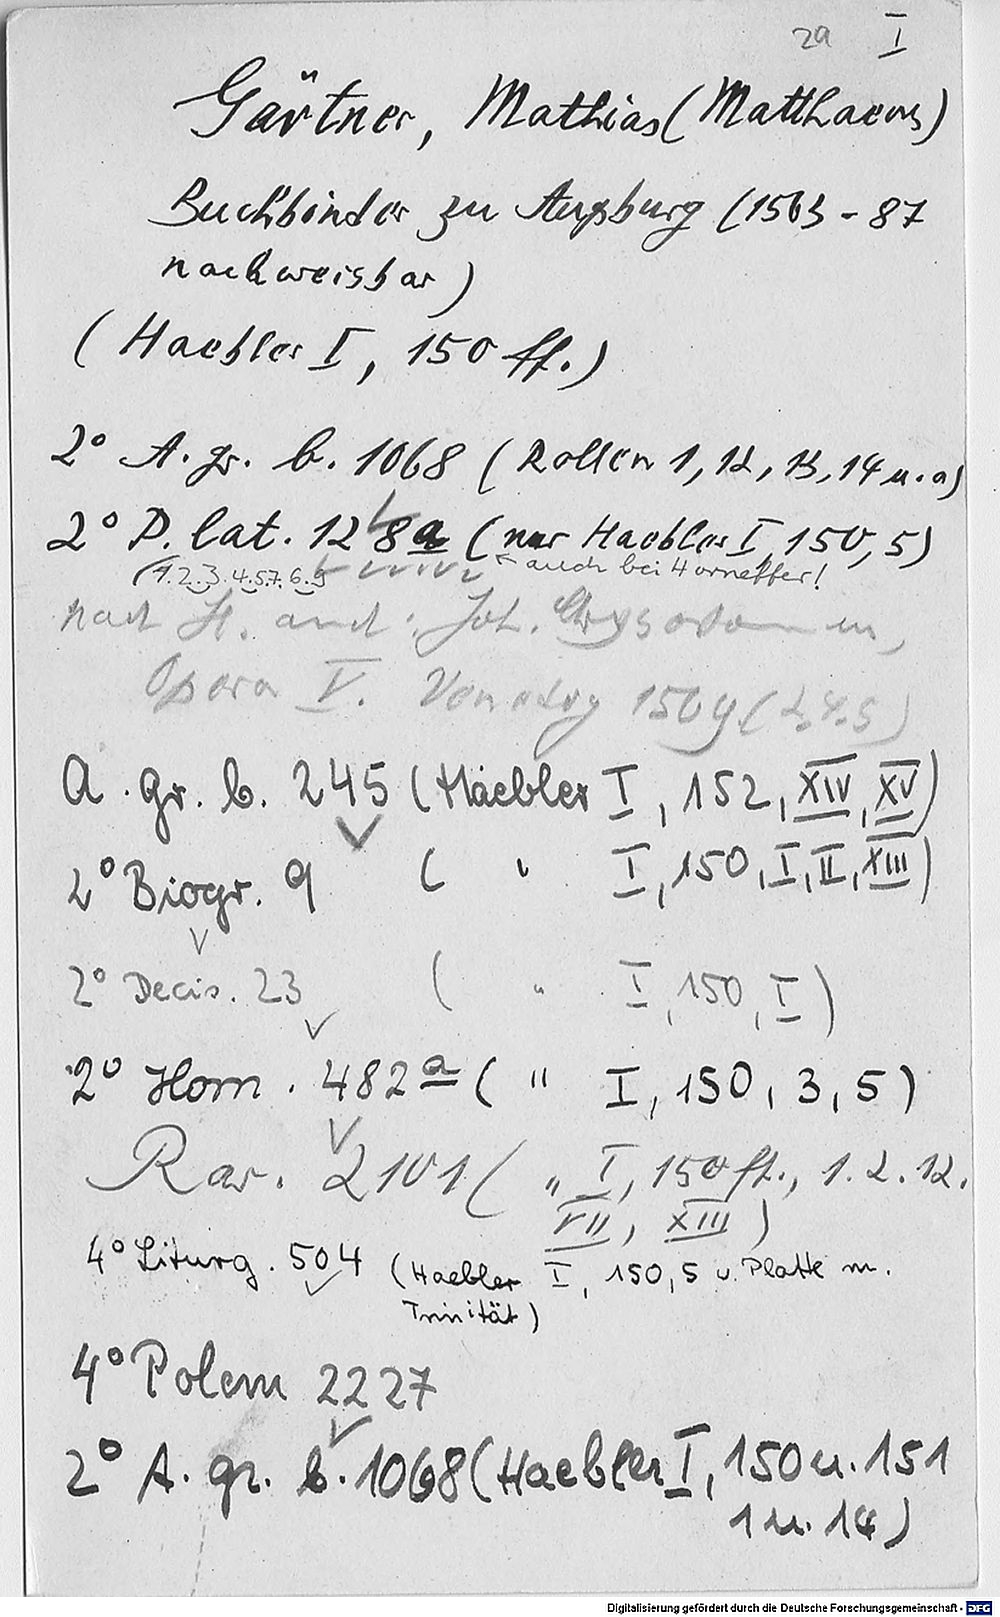 29 I
Gärtner, Mathias (Matthaeus)
Buchbinder zu Augsburg (1563 - 87
nachweisbar)
(Haebler I, 150 ff.)
2° A. gr. b. 1068 (Rollen 1, 12, 13, 14 u. a)
2° P. lat. 128a (nur Haebler I, 150, 5)
(1.2.3.4.5.7.6.9 auch bei Horneffer!
nach H. and: Joh. Chrysostomum,
Opera V. Venedig (2.4.5)
A. gr. b. 245 (Haebler I, 152, XIV, XV)
2° Biogr. 9 ( " I, 150, I, II, XIII)
2° Decis. 23 ( " I, 150, I)
2° Hom. 482a ( " I, 150, 3, 5)
Rar. 2101 ( " I, 150 ff., 1. 2. 12.
VII, XIII)
4° Liturg. 504 (Haebler I, 150, 5 u. Platte m.
Trinität)
4° Polem 2227
2° A. gr. b. 1068 (Haebler I, 150 u. 151
1 u. 14)
Digitalisierung gefördert durch die Deutsche Forschungsgemeinschaft - DFG